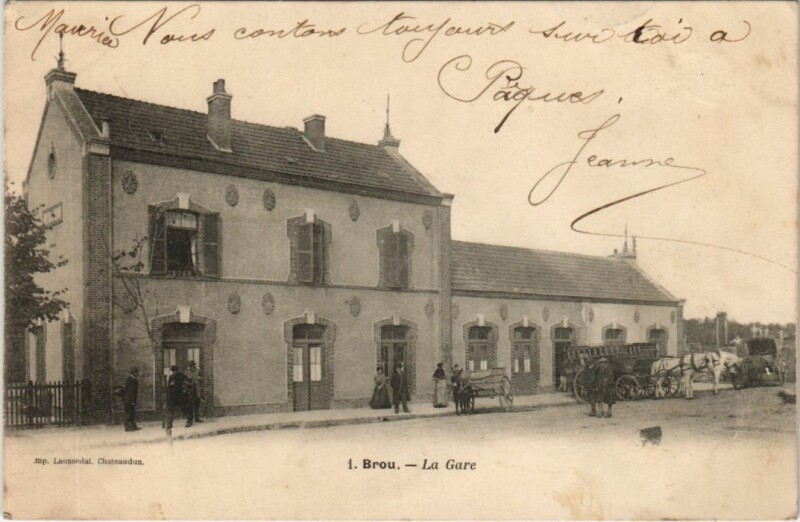 Maurice Nous contons toujours sur toi a
Pâques.
Jeanne
Imp. Laussedat, Chateaudun.
1. Brou. — La Gare